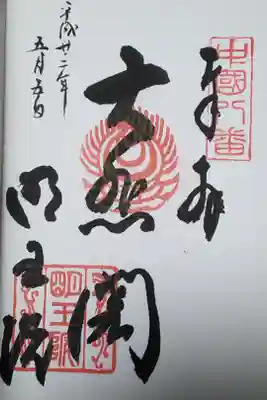 中國八番
奉拝
大悲閣
明王院
明王院
平成廿二年
五月五日